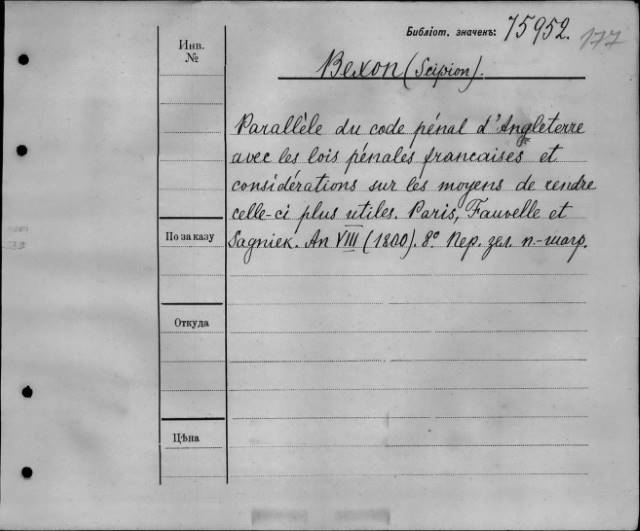 Библіот. значекъ: 75952. 177
Инв.
№
Bexon (Scipion).
Parallèle du code pénal d'Angleterre
avec les lois pénales francaises et
considérations sur les moyens de rendre
celle-ci plus utiles. Paris, Fauvelle et
Sagnier. An VIII (1800). 8° Пер. зел. п.-шагр.
По заказу
Откуда
Цѣна